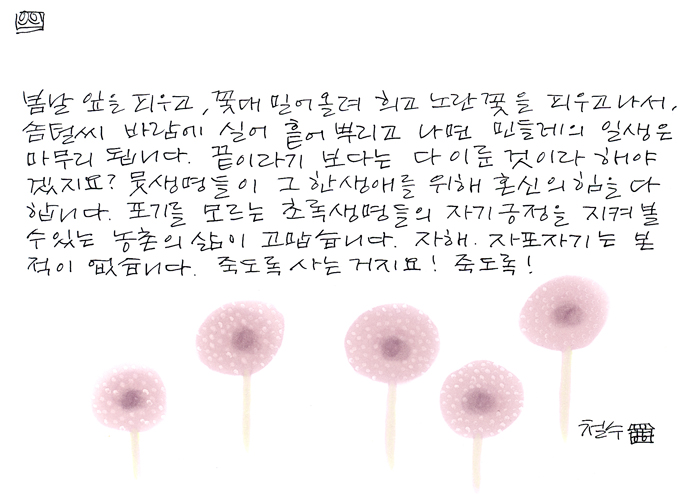 봄날 잎을 피우고, 꽃대 밀어올려 희고 노란 꽃을 피우고 나서,
솜털씨 바람에 실어 흩어 뿌리고 나면 민들레의 일생은
마무리 됩니다. 끝이라기 보다는 다 이룬 것이라 해야
겠지요? 뭇생명들이 그 한생애를 위해 혼신의 힘을 다
합니다. 포기를 모르는 초록생명들의 자기긍정을 지켜 볼
수 있는 농촌의 삶이 고맙습니다. 자해·자포자기는 본
적이 없습니다. 죽도록 사는 거지요! 죽도록!
철수